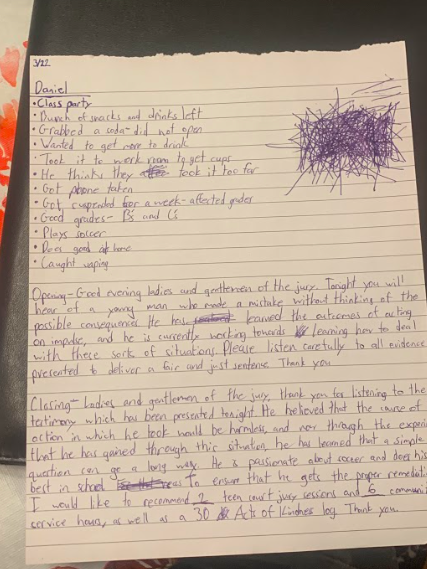 3/22
Daniel
• Class party
• Bunch of snacks and drinks left
• Grabbed a soda - did not open
• Wanted to get more to drink
• Took it to work room to get cups
• He thinks they took it too far
• Got phone taken
• Got suspended for a week - affected grades
• Good grades - B's and C's
• Plays soccer
• Does good at home
• Caught vaping
Opening - Good evening ladies and gentlemen of the jury. Tonight you will
hear of a young man who made a mistake without thinking of the
possible consequences. He has learned the outcomes of acting
on impulse, and he is currently working towards learning how to deal
with these sorts of situations. Please listen carefully to all evidence
presented to deliver a fair and just sentence. Thank you.
Closing - Ladies and gentlemen of the jury, thank you for listening to the
testimony which has been presented tonight. He believed that the course of
action in which he took would be harmless, and now through the
that he has gained through this situation he has learned that a simple
question can go a long way. He is passionate about soccer and does his
best in school. To ensure that he gets the proper
I would like to recommend 2 teen court jury sessions and 6
service hours, as well as a 30 Acts of Kindness log. Thank you.